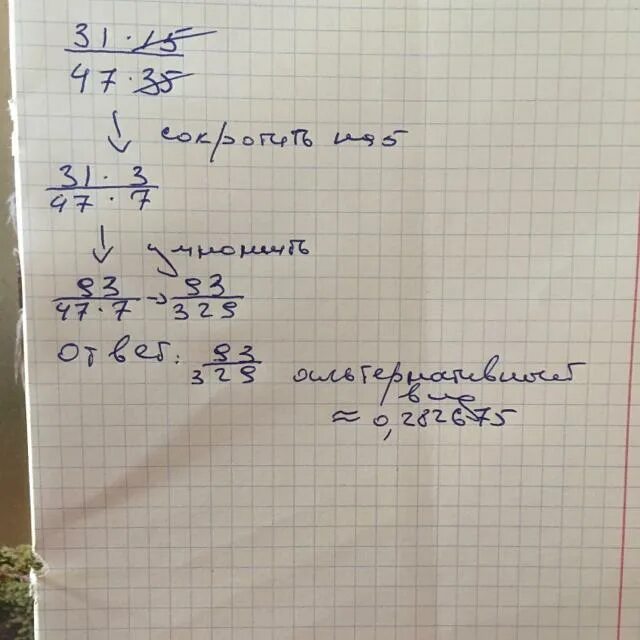 31 · 15
47 · 35
↓ сократить на 5
31 · 3
47 · 7
↓ умножить
93
47 · 7
→
93
329
Ответ:
93
329
альтернативный
вид
≈ 0,282675